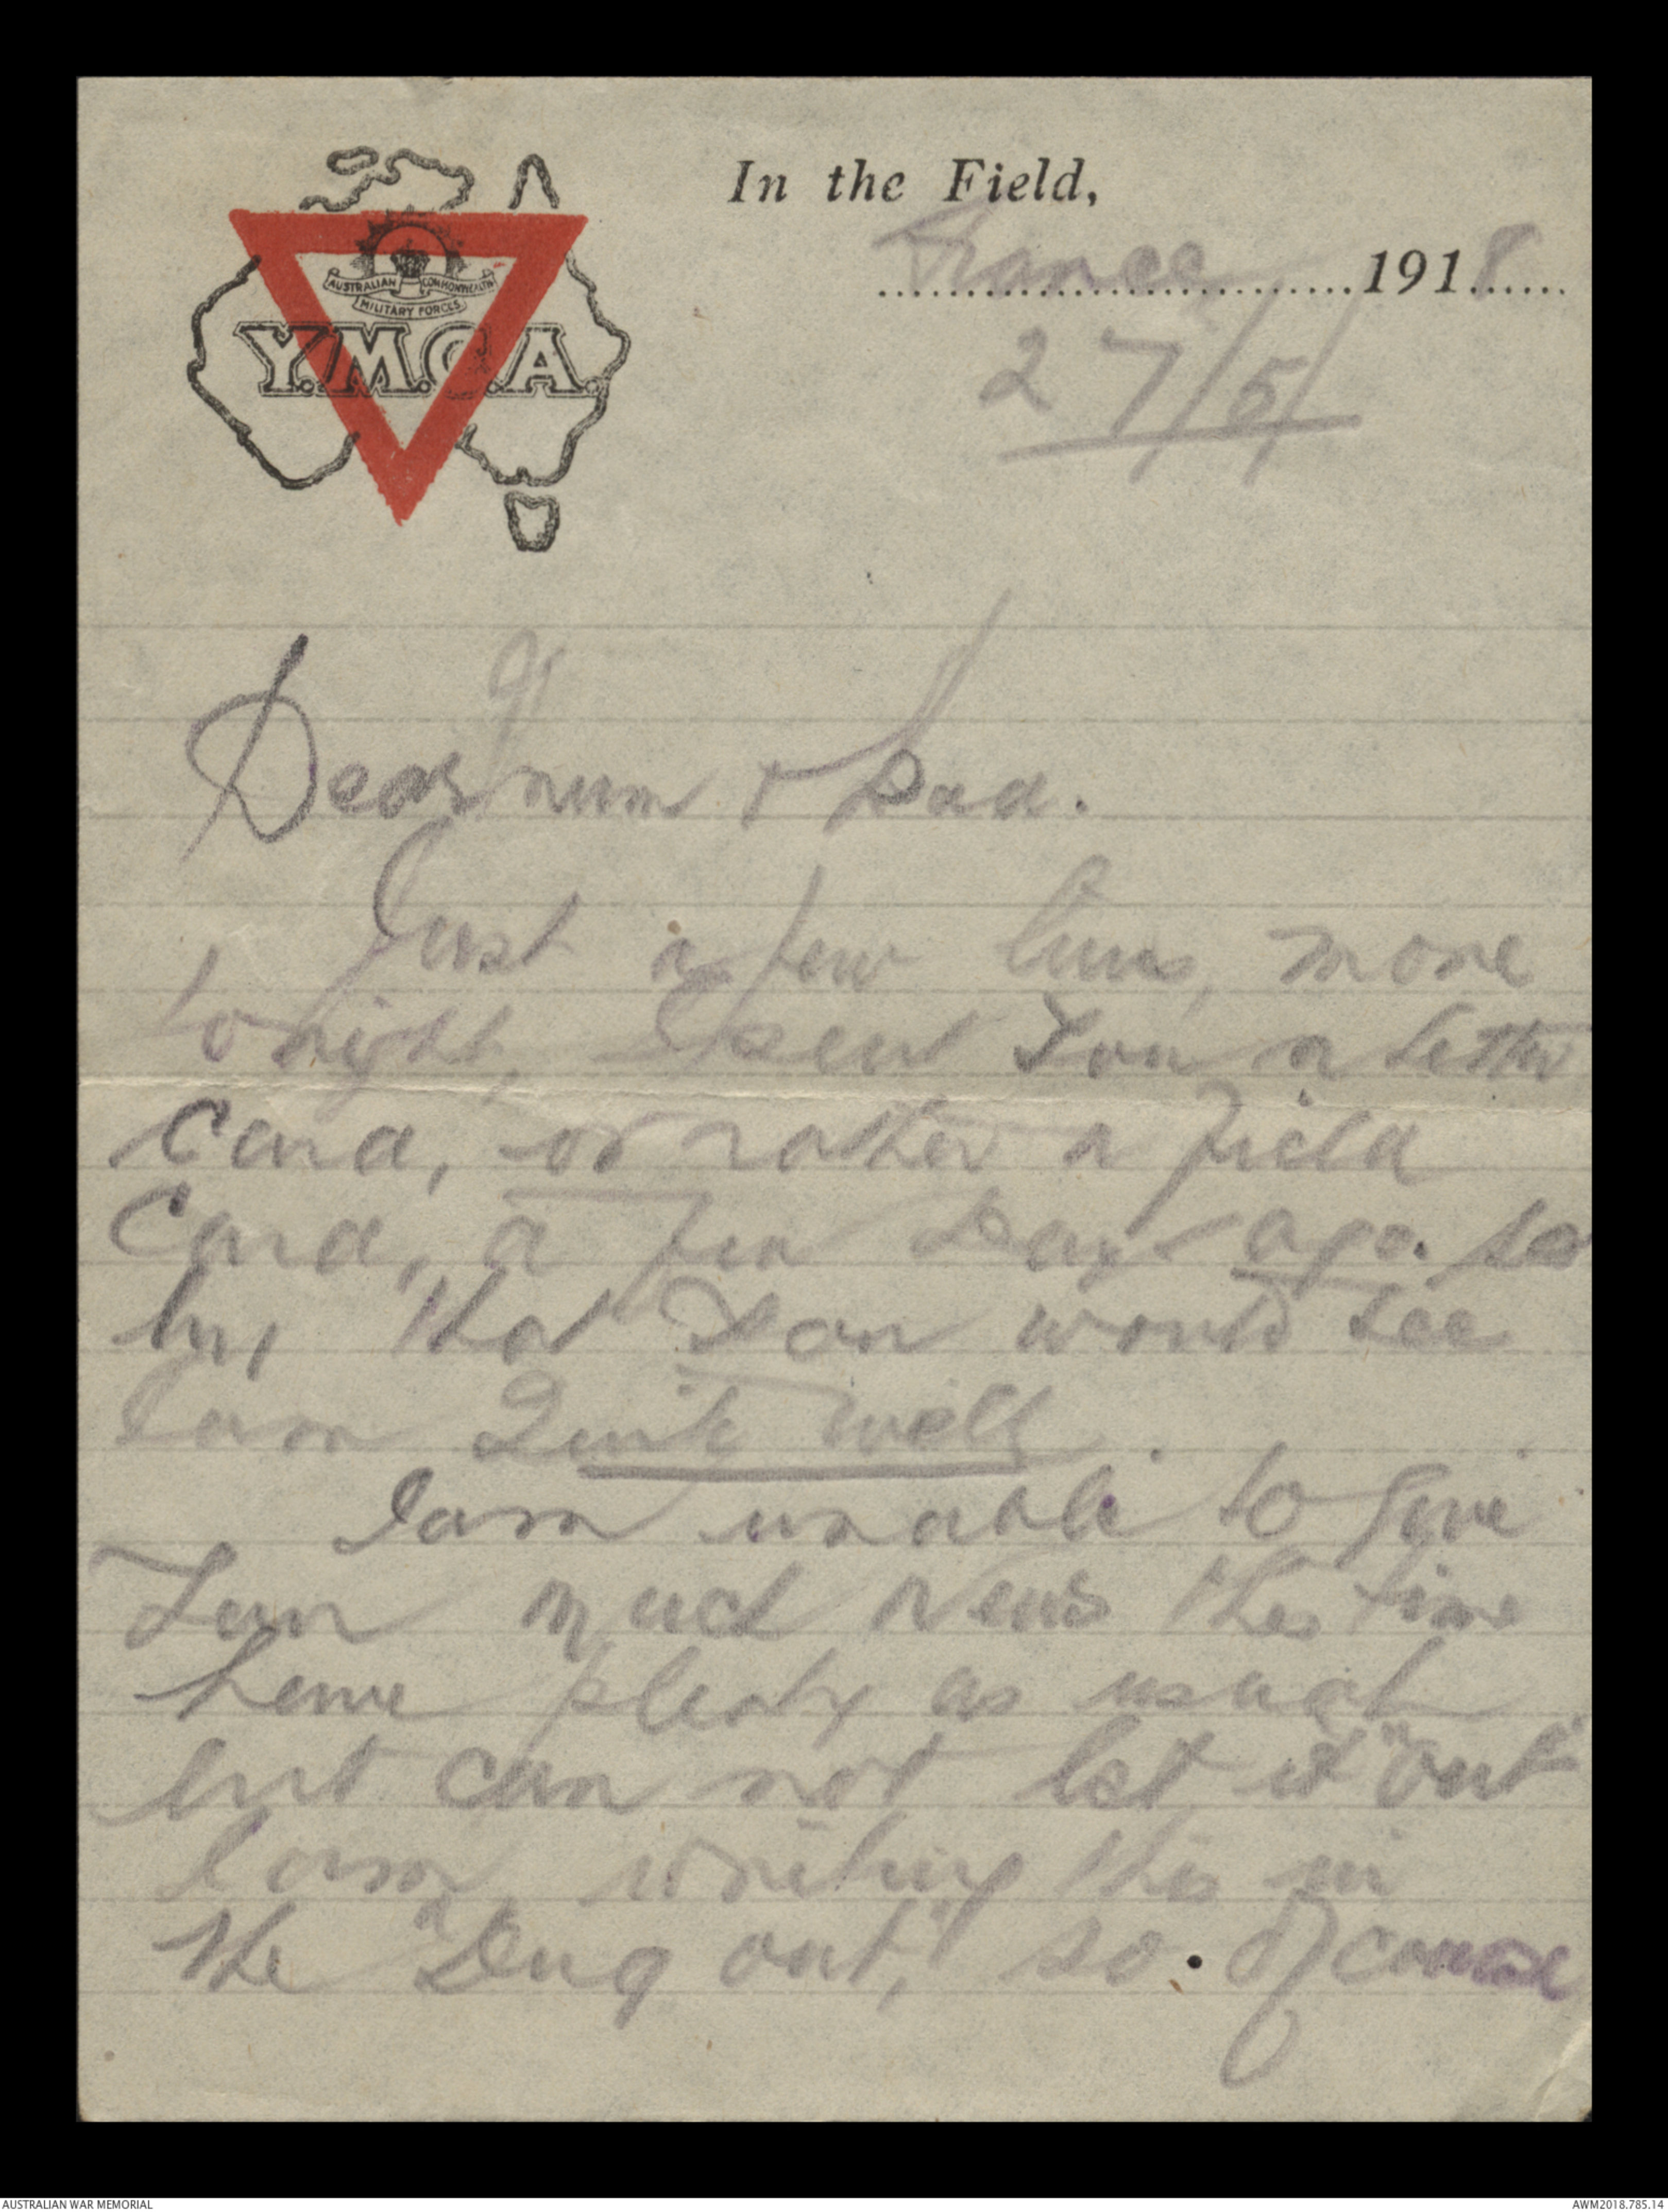 In the Field,
France 1918
27/5/
AUSTRALIAN COMMONWEALTH
MILITARY FORCES
Y.M.C.A.
Dear mum & Dad.
Just a few lines, more
tonight, I sent You a letter
Card, or rather a field
Card, a few Days ago. so
by that You would see
I am Quite well.
I am unable to give
You much News this time
have plenty as usual
but can not let it "out"
I am writing this in
the "Dug out," so. of course
AUSTRALIAN WAR MEMORIAL
AWM2018.785.14